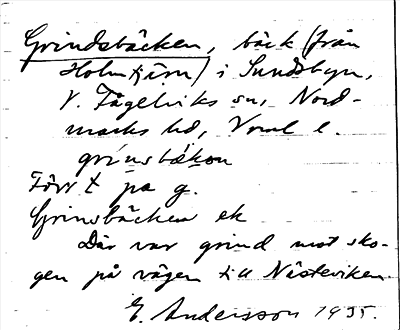 Grindsbäcken, bäck (från
Holmtjärn) i Sundsbyn,
V. Fågelviks sn, Nord-
marks hd, Vrml l.
grinsbäkən
Förr t på g.
Grinsbäcken ek
Där var grind mot sko-
gen på vägen till Nästeviken.
E. Andersson 1935.